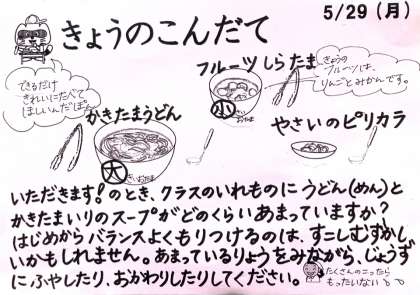 5/29（月）
きょうのこんだて
できるだけ
きれいにたべて
ほしいんだぽん
フルーツしらたま
きょうの
フルーツは、
りんごとみかんです。
小
さいおたま
かきたまうどん
大
さいおたま
やさいのピリカラ
いただきます！のとき、クラスのいれものに うどん（めん）と
かきたまいりのスープがどのくらいあまっていますか？
はじめから バランスよくもりつけるのは、すこしむずかし
いかもしれません。あまっているりょうをみながら、じょうず
にふやしたり、おかわりしたりしてください。
たくさんのこったら
もったいない